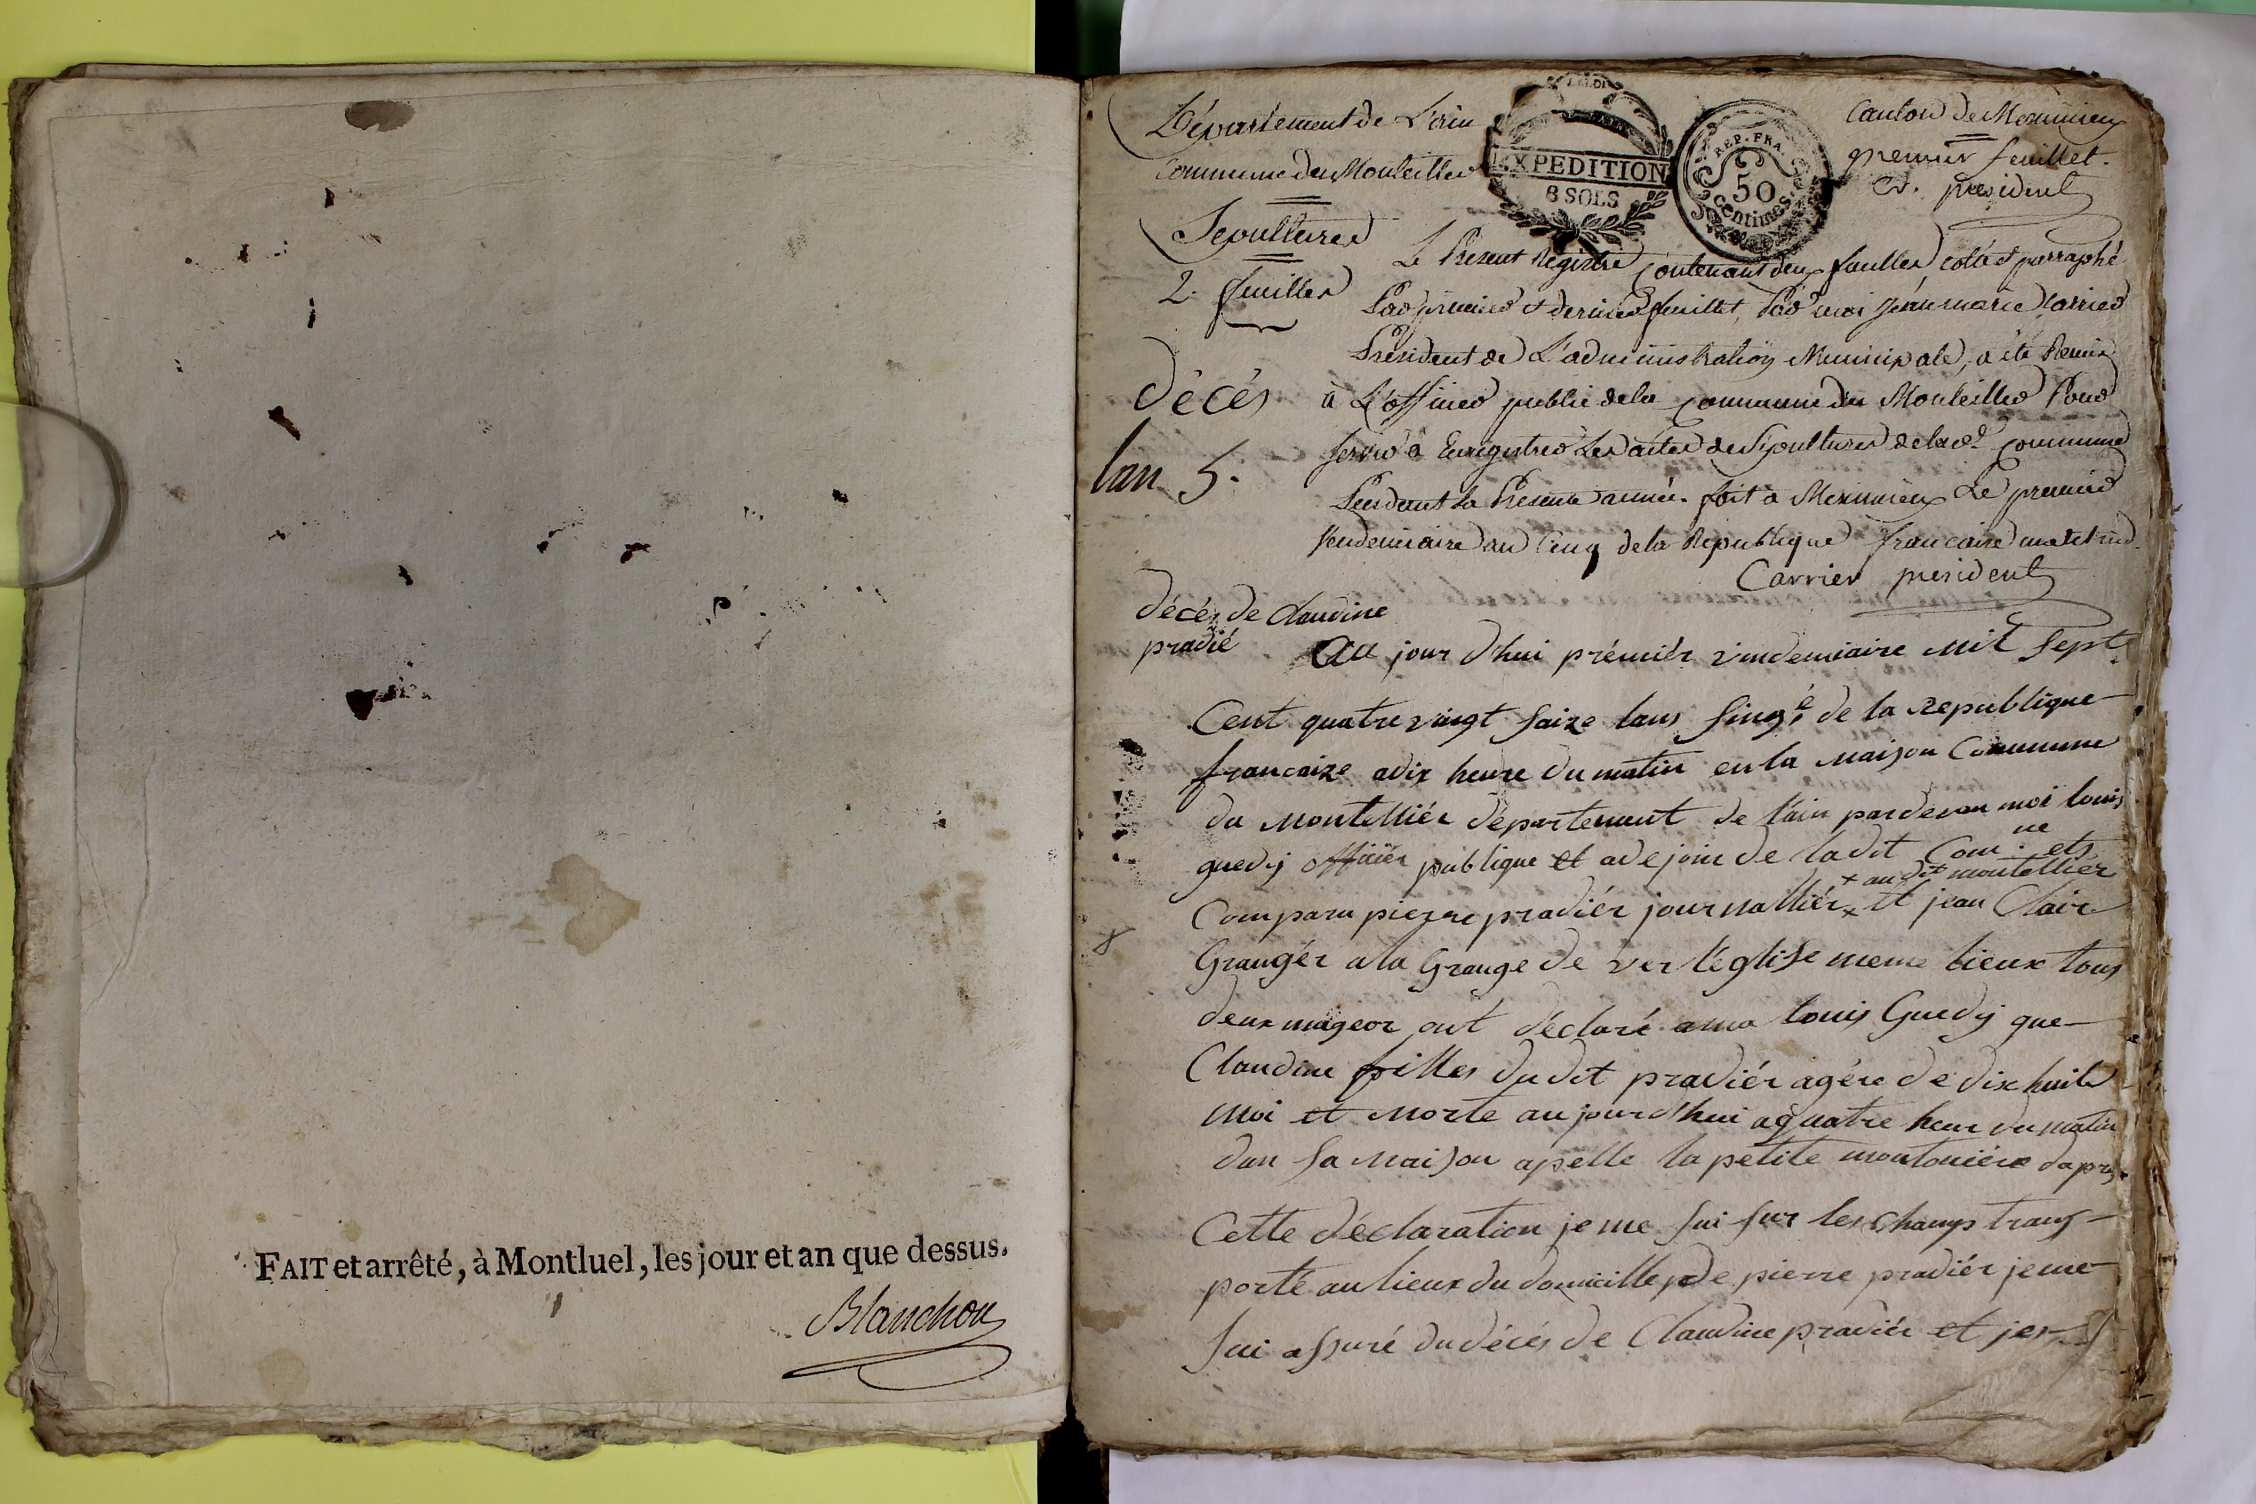 FAIT et arrêté, à Montluel, les jour et an que dessus.
Blanchon
Département de L'ain
Commune du Montellier
Canton de Meximieux
premier feuillet.
president
LA LOI
EXPEDITION
8 SOLS
REP. FRA.
50
centimes
Sepultures
2. feuilles
décés
lan 5.
Le Présent Registre Contenant deux feuilles coté et parraphé
Par premier & dernier feuillet, Par moi jean marie Carrier
Président de L'administration Municipale, a été Remis
à L'officier public de la Commune du Montellier Pour
servir à Enrégistrer Les actes de Sepultures de lad.e Commune
Pendant la Présente année. fait à Meximieux Le premier
Vendemiaire an Cinq de la République francaise
Carrier president
décés de Claudine
pradié
Au jour d'hui prémiér vindemiaire mil sept
Cent quatre vingt saize lans sing.é de la republique
francaize a dix heure du matin en la maison Commune
du montelliér département de l'ain pardevan moi louis
guedy officiér publique et adejoin de la dit Com.ne ets
Comparu pierre pradiér journalliér x et jean Clair
x au dit montelliér
Grangér a la Grange de ver l'églisse meme lieux tous
deux mageor ont déclaré a moi louis Guedy que
Claudine filles du dit pradiér agére de dix huit
moi et morte au jourd'hui a quatre heur du matin
dan sa maison apelle la petite moutoniére daprés
Cette déclaration je me sui sur les champ trans-
porté au lieux du domicille de pierre pradiér je me
sui assuré du décés de Claudine pradiér et jer